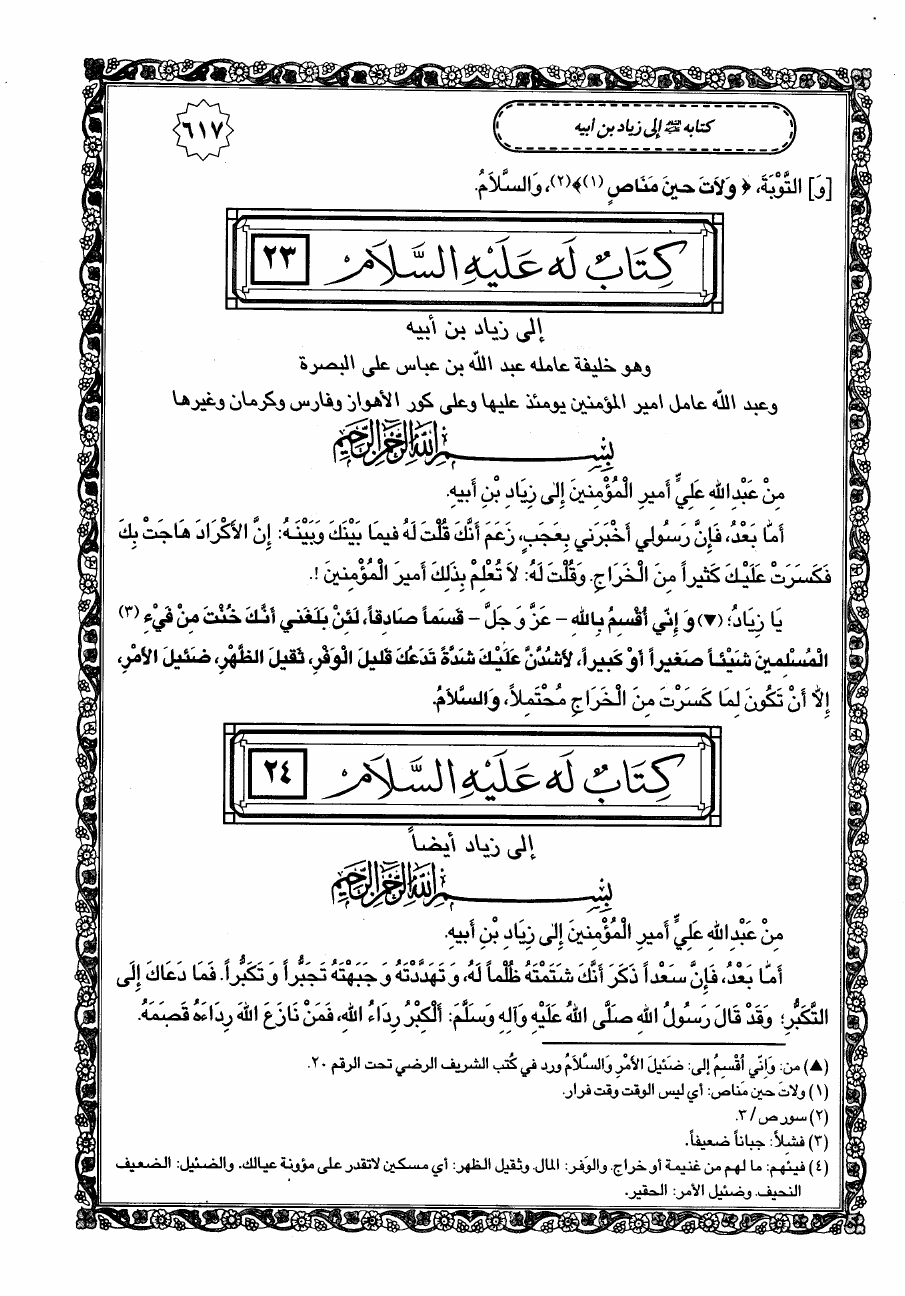 كتابه عليه السلام إلى زياد بن أبيه
٦١٧
[وَ] التَّوْبَةَ، ﴿ وَلَاتَ حينَ مَنَاصٍ (١)﴾(٢)، وَالسَّلَامُ.
كِتَابٌ لَه عَلَيْهِ السَّلَام
٢٣
إلى زياد بن أبيه
وهو خليفة عامله عبد اللّه بن عباس على البصرة
وعبد اللّه عامل امير المؤمنين يومئذ عليها وعلى كور الأهواز وفارس وكرمان وغيرها
بِسْمِ اللهِ الرَّحْمٰنِ الرَّحِيمِ
مِنْ عَبْدِ اللهِ عَلِيٍّ أَميرِ الْمُؤْمِنينَ إِلى زِيَادِ بْنِ أَبيهِ.
أَمّا بَعْدُ، فَإِنَّ رَسُولي أَخْبَرَني بِعَجَبٍ، زَعَمَ أَنَّكَ قُلْتَ لَهُ فيما بَيْنَكَ وَبَيْنَهُ: إِنَّ الأَكْرَادَ هَاجَتْ بِكَ
فَكَسَرَتْ عَلَيْكَ كَثيراً مِنَ الْخَرَاجِ. وَقُلْتَ لَهُ: لاَ تُعْلِمْ بِذلِكَ أَميرَ الْمُؤْمِنينَ !.
يَا زِيَادُ؛ (▼) وَ إِنّي أُقْسِمُ بِاللهِ - عَزَّ وَ جَلَّ - قَسَماً صَادِقاً، لَئِنْ بَلَغَني أَنَّكَ خُنْتَ مِنْ فَيْءِ (٣)
الْمُسْلِمينَ شَيْئاً صَغيراً أَوْ كَبيراً، لأَشُدَّنَّ عَلَيْكَ شَدَّةً تَدَعُكَ قَليلَ الْوَفْرِ، ثَقيلَ الظَّهْرِ، ضَئيلَ الأَمْرِ،
إِلاَّ أَنْ تَكُونَ لِمَا كَسَرْتَ مِنَ الْخَرَاجِ مُحْتَمِلاً، وَالسَّلاَمُ.
كِتَابٌ لَه عَلَيْهِ السَّلَام
٢٤
إلى زياد أيضاً
بِسْمِ اللهِ الرَّحْمٰنِ الرَّحِيمِ
مِنْ عَبْدِ اللهِ عَلِيٍّ أَميرِ الْمُؤْمِنينَ إِلى زِيَادِ بْنِ أَبيهِ.
أَمّا بَعْدُ، فَإِنَّ سَعْداً ذَكَرَ أَنَّكَ شَتَمْتَهُ ظُلْماً لَهُ، وَ تَهَدَّدْتَهُ وَ جَبَهْتَهُ تَجَبُّراً وَ تَكَبُّراً. فَمَا دَعَاكَ إِلَى
التَّكَبُّرِ؛ وَقَدْ قَالَ رَسُولُ اللهِ صَلَّى اللهُ عَلَيْهِ وَآلِهِ وَسَلَّمَ: أَلْكِبْرُ رِدَاءُ اللهِ، فَمَنْ نَازَعَ اللهَ رِدَاءَهُ قَصَمَهُ.
(▲) من: وَإِنّي أُقْسِمُ إلى: ضَئيلَ الأَمْرِ وَالسَّلاَمُ ورد في كُتب الشريف الرضي تحت الرقم ٢٠.
(١) ولاتَ حينَ مَناص: أي ليس الوقت وقت فرار.
(٢) سور ص / ٣.
(٣) فشلاً: جباناً ضعيفاً.
(٤) فيئهم: ما لهم من غنيمة أو خراج. والوَفر: المال. وثقيل الظهر: أي مسكين لاتقدر على مؤونة عيالك. والضئيل: الضعيف
النحيف. وضئيل الأمر: الحقير.